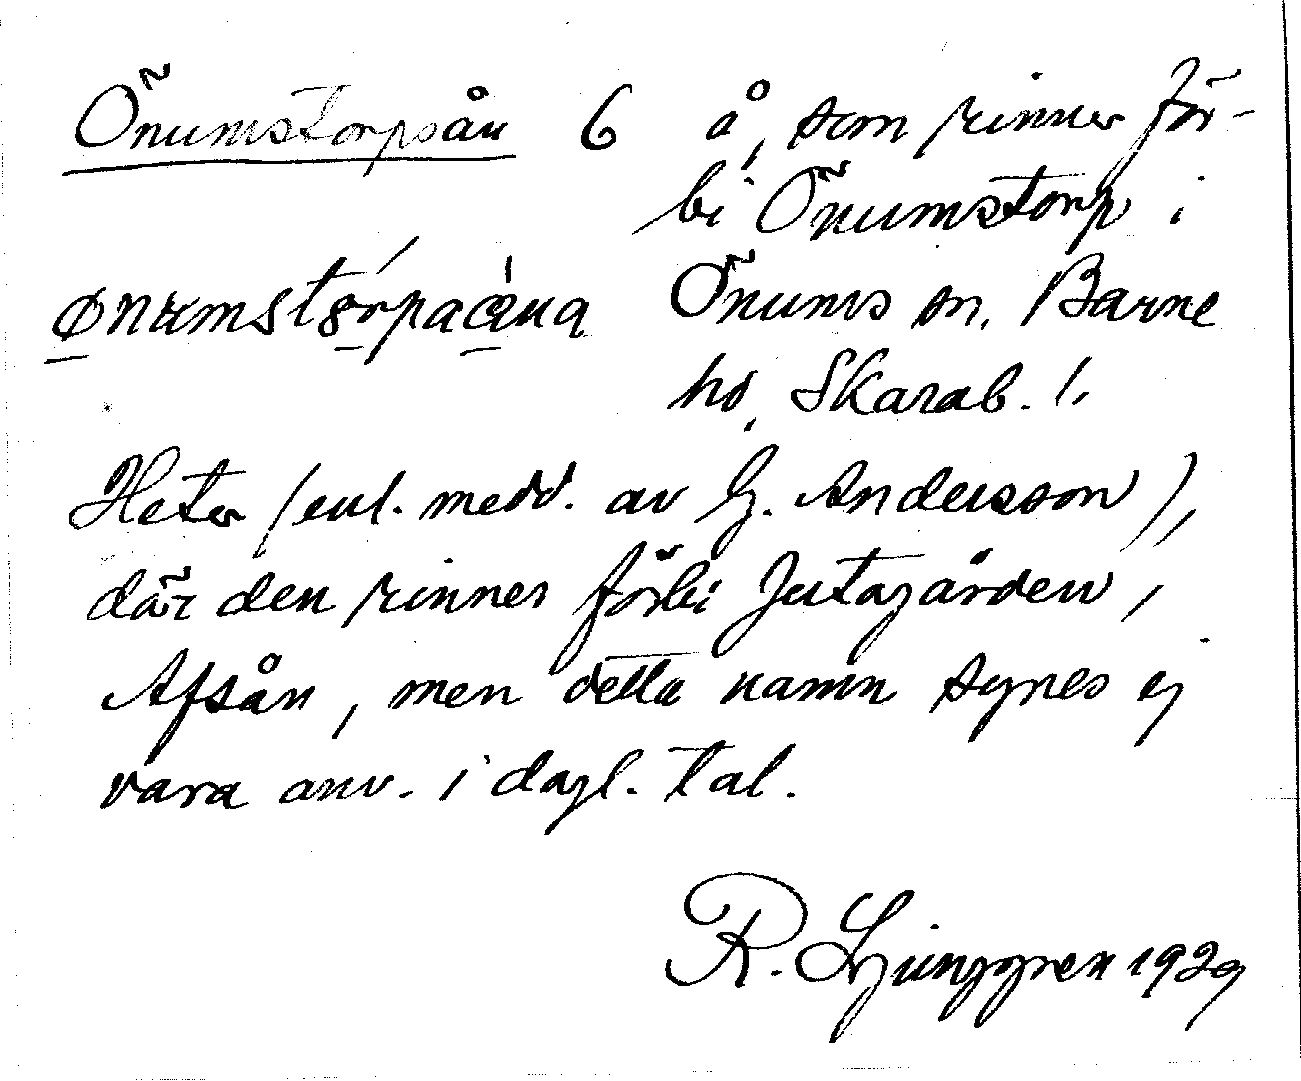 Önumstorpsån 6 å, som rinner för-
bi Önumstorp i
Önums sn, Barne
hd, Skarab. l.
Heter (enl. medd. av G. Andersson),
där den rinner förbi Jutagården,
Afsån, men detta namn synes ej
vara anv. i dagl. tal.
R. Ljunggren 1929